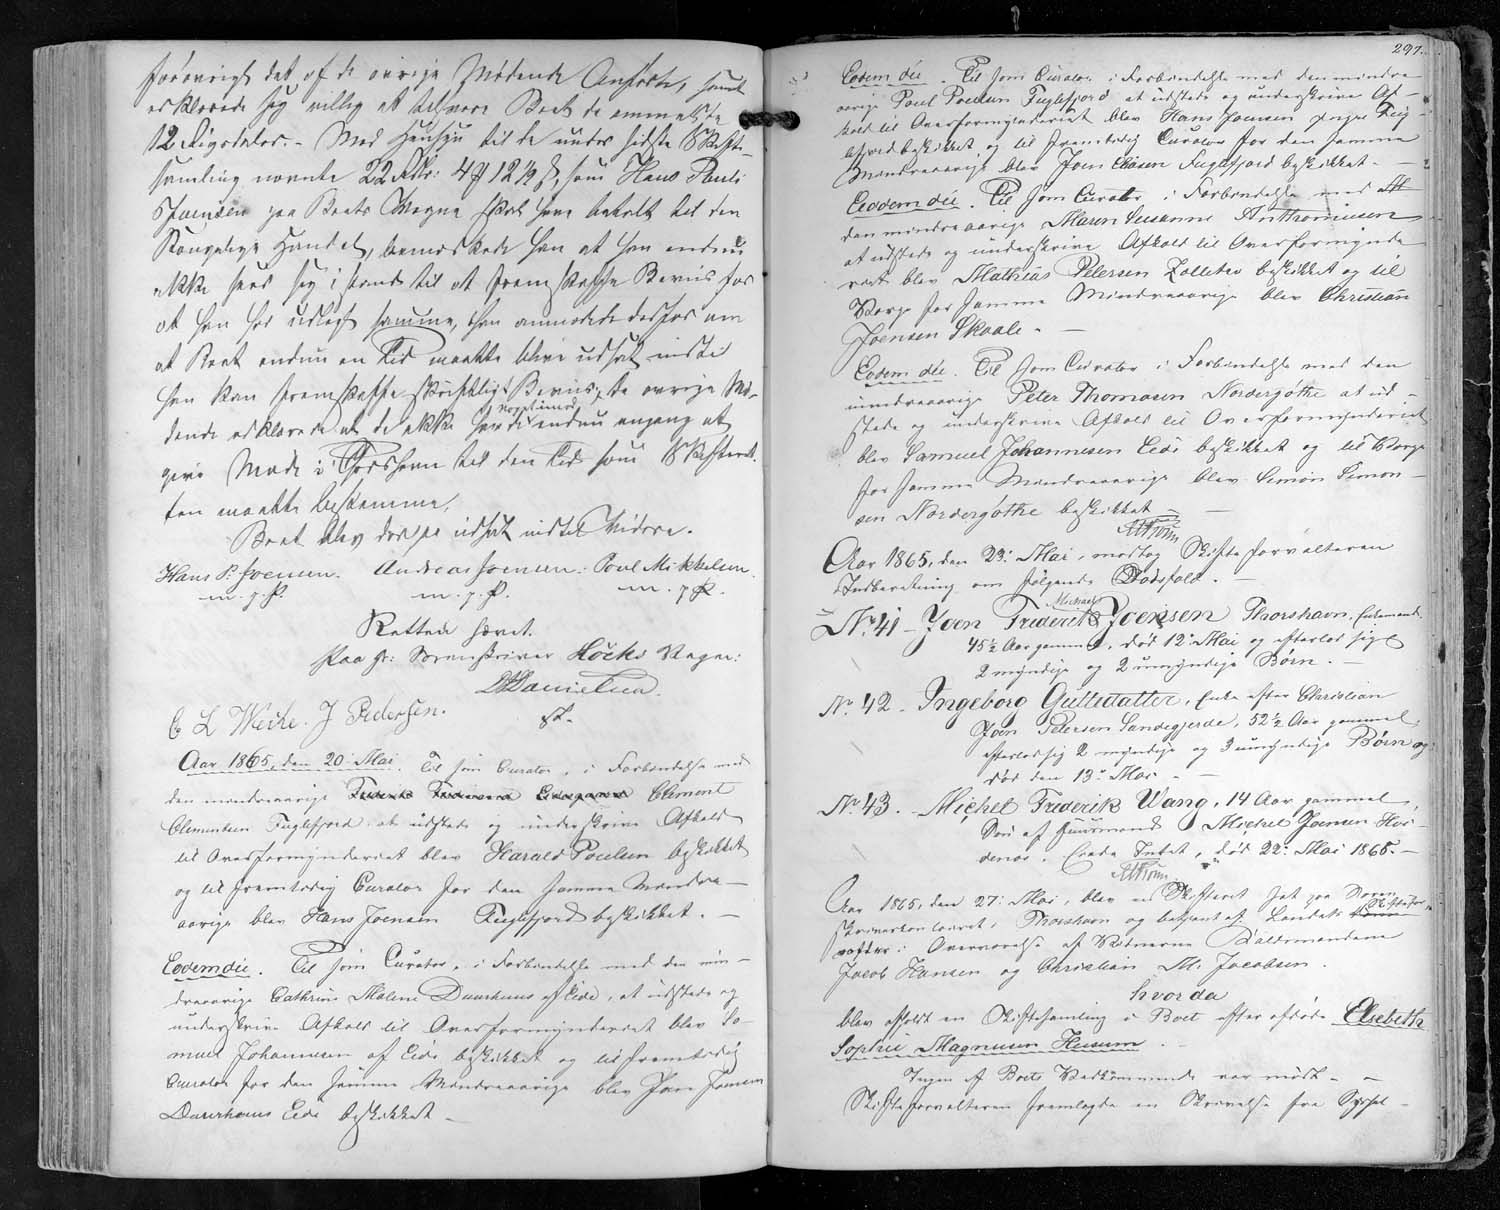 forøvrigt det af de øvrige Mødende Anførte, samt
erklærede sig villig at tilsvare Boet de ommeldte
12 Rigsdaler. - Med Hensyn til de under sidste Skifte-
samling nævnte 22 Rdlr: 4 ƒ 12½ ß, som Hans Pauli
Joensen paa Boets Vegne skal have betalt til den
Kongelige Handel, bemærkede han at han endnu
ikke saae sig i stand til at fremskaffe Beviis for
at han har udlagt samme, han anmodede derfor om
at Boet endnu en Tid maatte blive udsat indtil
han kan fremskaffe skriftligt Beviis; De øvrige Mø-
dende erklærede at de ikke havde nogetimod endnu engang at
give Møde i Thorshavn til den Tid som Skifteret-
ten maatte bestemme.
Boet blev derpaa udsat indtil Videre.
Hans P: Joensen. Andreas Joensen. Poul Mikkelsen
m. p. P. m. p. P. m. p. P.
Retten hævet.
Paa Hr: Sorenskriver Høeks Vegne:
Danielsen
C L Weihe. J Pedersen. st.
Aar 1865, den 20 Mai. Til som Curator, i Forbindelse med
den mindreaarige Clement
Clementsen Fuglefjord at udstede og underskrive Afkald
til Overformynderiet blev Harald Poulsen beskikket
og til fremtidig Curator for den samme Mindre-
aarige blev Hans Joensen Fuglefjord beskikket. -
Eodem die. Til som Curator, i Forbindelse med den min-
dreaarige Cathrine Malene Duurhuus af Eide, at udstede og
underskrive Afkald til Overformynderiet blev Sa-
muel Johannesen af Eide beskikket og til fremtidig
Curator for den samme Mindreaarige blev Joen Joensen
Duurhuus Eide beskikket -
297.
Eodem die. Til som Curator i Forbindelse med den mindre
aarige Poul Poulsen Fuglefjord at udstede og underskrive Af-
kald til Overformynderiet blev Hans Joensen yngre Fug-
lefjord beskikket og til fremtidig Curator for den samme
Mindreaarige blev Joen Fuglefjord beskikket. -
Eodem die. Til som Curator i Forbindelse med
den mindreaarige Maren Susanne Anthoniussen
at udstede og underskrive Afkald til Overformynde
riet blev Mathias Petersen Zolleter beskikket og til
Værge for samme Mindreaarige blev Christian
Joensen Skaale -
Eodem die. Til som Curator i Forbindelse med den
mindreaarige Peter Thomasen Nordergøthe at ud-
stede og underskrive Afkald til Overformynderiet
blev Samuel Johannesen Eide beskikket og til Værge
for samme Mindreaarige blev Simon Simon-
sen Nordergøthe beskikket
Aar 1865, den 23: Mai, modtog Skifteforvalteren
Indberetning om følgende Dødsfald. -
No. 41 - Joen Frederik Michael Joensen Thorshavn,
45½ Aar gammel, død 12te Mai og efterlod sig
2 myndige og 2 umyndige Børn. -
No. 42 - Ingeborg Guttesdatter, Enke efter Christian
Joen Petersen Sandegjerde, 52½ Aar gammel,
efterlod sig 2 myndige og 3 umyndige Børn og
død den 13de Mai - -
No. 43. - Michel Frederik Wang, 14 Aar gammel,
Søn af Huusmand Michel Joensen Hvi-
denæs, Eiede Intet, død 22: Mai 1865. -
Aar 1865, den 27: Mai, blev en Skifteret sat paa Soren-
skrivercontoiret i Thorshavn og betjent af Landets Skiftefor-
valter i Overværelse af Vidnerne Boldsmændene
Jacob Hansen og Christian M. Jacobsen.
hvorda
blev afholdt en Skiftesamling i Boet efter afdøde Elsebeth
Sophie Magnusen Husum.
Ingen af Boets Vedkommende var mødt - -
Skifteforvalteren fremlagde en Skrivelse fra Syssel-